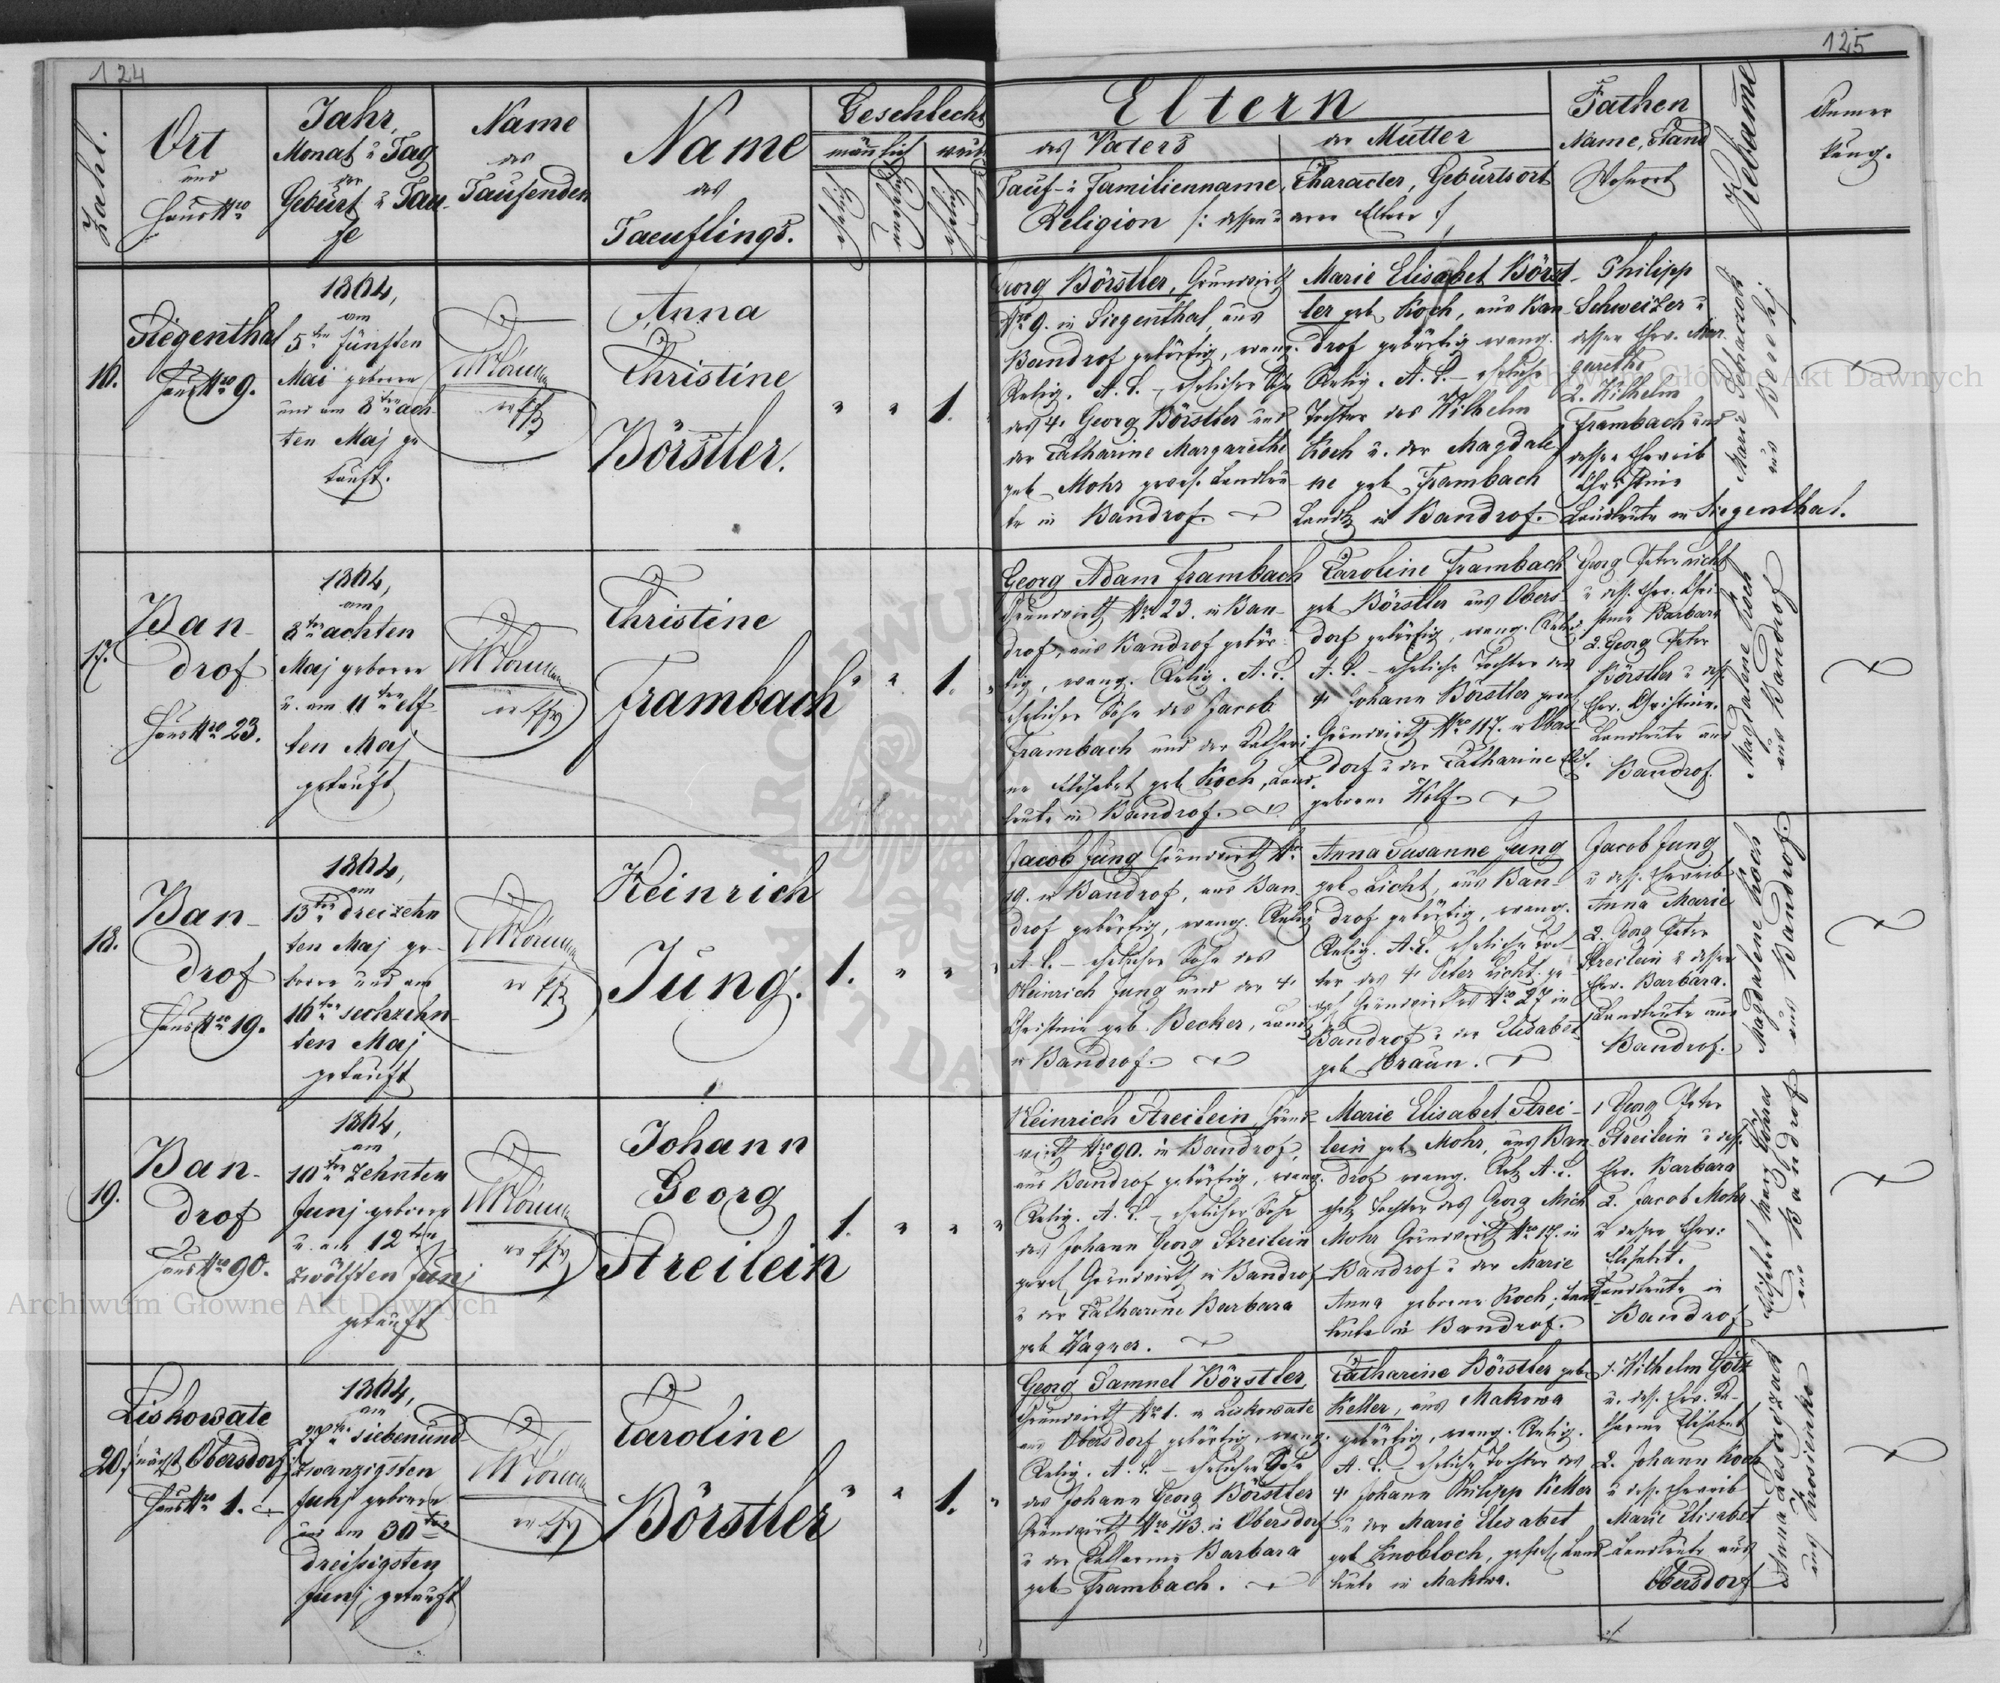 124
125
Zahl.
Ort
und
Haus Nro
Jahr,
Monat u Tag
der
Geburt u Tau-
fe
Name
des
Taufenden
Name
des
Taeuflings.
Geschlecht
männlich
Eltern
des Vaters
der Mutter
Tauf- u Familienname, Character, Geburtsort
Religion /: dessen u deren Eltern :/
Pathen
Name, Stand
Wohnort
Hebame
Anmer
kung.
Siegenthal
Haus Nro 9.
1864,
am
5ten fünften
Mai geboren
und am 8ten ach-
ten Maj ge
tauft.
Anna
Christine
Börstler.
" " 1.
Georg Börstler, Grundwirth
Nro 9. in Siegenthal, aus
Bandrof gebürtig, evang.
Relig. A. C. – ehelicher Sohn
des Georg Börstler und
der Catharine Margarethe
geb. Mohr gewes. Landleu
te in Bandrof.
Marie Elisabet Börst-
ler geb. Koch, aus Ban
drof gebürtig evang.
Relig. A. C. – eheliche
Tochter des Wilhelm
Koch u. der Magdale
ne geb. Frambach
Landl. in Bandrof.
Philipp
Schweizer u
dessen Ehew. Mar-
garethe
2. Wilhelm
Frambach und
dessen Eheweib
Christine
Landleute in Siegenthal.
Marie Scharach
17.
Ban-
drof
Haus Nro 23.
1864,
am
8ten achten
Maj geboren
u. am 11ten elf
ten Maj
getauft
Christine
Frambach
" " 1. "
Georg Adam Frambach
Grundwirth Nro 23. in Ban-
drof, aus Bandrof gebür-
tig, evang. Relig. A. C.
ehelicher Sohn des Jacob
Frambach und der Kathari-
ne Elisabet geb. Koch, Land-
leute in Bandrof.
Caroline Frambach
geb. Börstler aus Obers-
dorf gebürtig, evang. Relig
A. C. – eheliche Tochter des
Johann Börstler gewes.
Grundwirth Nro 117. in Obers-
dorf u der Catharine Elis.
geborene Wolf.
Georg Peter
u dess. Ehew. Chri-
stine Barbara
2. Georg Peter
Börstler u dess
Ehew. Christine.
Landleute aus
Bandrof.
Magdalene Koch
aus Bandrof
18.
Ban-
drof
Haus Nro 19.
1864,
am
13ten dreizehn
ten Maj ge-
boren und am
16ten sechzehn-
ten Maj
getauft
Heinrich
Jung.
1. " " "
Jacob Jung Grundwirth Nro
19. in Bandrof, aus Ban-
drof gebürtig, evang. Relig
A. C. – ehelicher Sohn des
Heinrich Jung und der
Christine geb. Becker, Landl
in Bandrof.
Anna Susanne Jung
geb. Licht, aus Ban-
drof gebürtig, evang.
Relig. A. C. eheliche Toch-
ter des Peter Licht ge
Grundwirth Nro 27 in
Bandrof u der Elisabet
geb. Braun.
Jacob Jung
u dess. Eheweib
Anna Marie
2. Georg Peter
Streilein u dessen
Ehew. Barbara.
Landleute aus
Bandrof.
Magdalene Koch
aus Bandrof.
19.
Ban-
drof
Haus Nro 90.
1864,
am
10ten zehnten
Junj geboren
u. am 12ten
zwölften Junj
getauft
Johann
Georg
Streilein
1. " " "
Heinrich Streilein, Grund-
wirth Nro 90. in Bandrof,
aus Bandrof gebürtig, evang.
Relig. A. C. – ehelicher Sohn
des Johann Georg Streilein
gewes. Grundwirth in Bandrof
u der Catharine Barbara
geb. Wagner.
Marie Elisabet Strei-
lein geb. Mohr, aus Ban
drof evang. Rel. A. C.
ehel. Tochter des Georg Mich
Mohr Grundwirth Nro 17. in
Bandrof u der Marie
Anna geborene Koch, Land-
leute in Bandrof.
1 Georg Peter
Streilein u dess.
Ehew. Barbara
2. Jacob Mohr
u dessen Ehew:
Elisabet.
Landleute in
Bandrof
aus Bandrof
20.
Liskowate
nächst Obersdorf
Haus Nro 1.
1864,
am
27ten siebenund-
zwanzigsten
Junj geboren
und am 30ten
dreißigsten
Junj getauft
Caroline
Börstler
" " 1. "
Georg Samuel Börstler,
Grundwirth Nro 1. in Liskowate
aus Obersdorf gebürtig, evang.
Relig. A. C. – ehelicher Sohn
des Johann Georg Börstler
Grundwirth Nro 113. in Obersdorf
u der Catharine Barbara
geb. Frambach.
Catharine Börstler geb.
Keller, aus Makowa
gebürtig, evang. Relig.
A. C. – eheliche Tochter des
Johann Philipp Keller
u der Marie Elisabet
geb. Knobloch, Land
leute in Makowa.
1. Wilhelm Götz
u. dess. Ehew. Ka-
tharine Elisabet
2. Johann Koch
u dess. Eheweib
Marie Elisabet
Landleute aus
Obersdorf
aus Krosienko
Archiwum Główne Akt Dawnych
Archiwum Główne Akt Dawnych